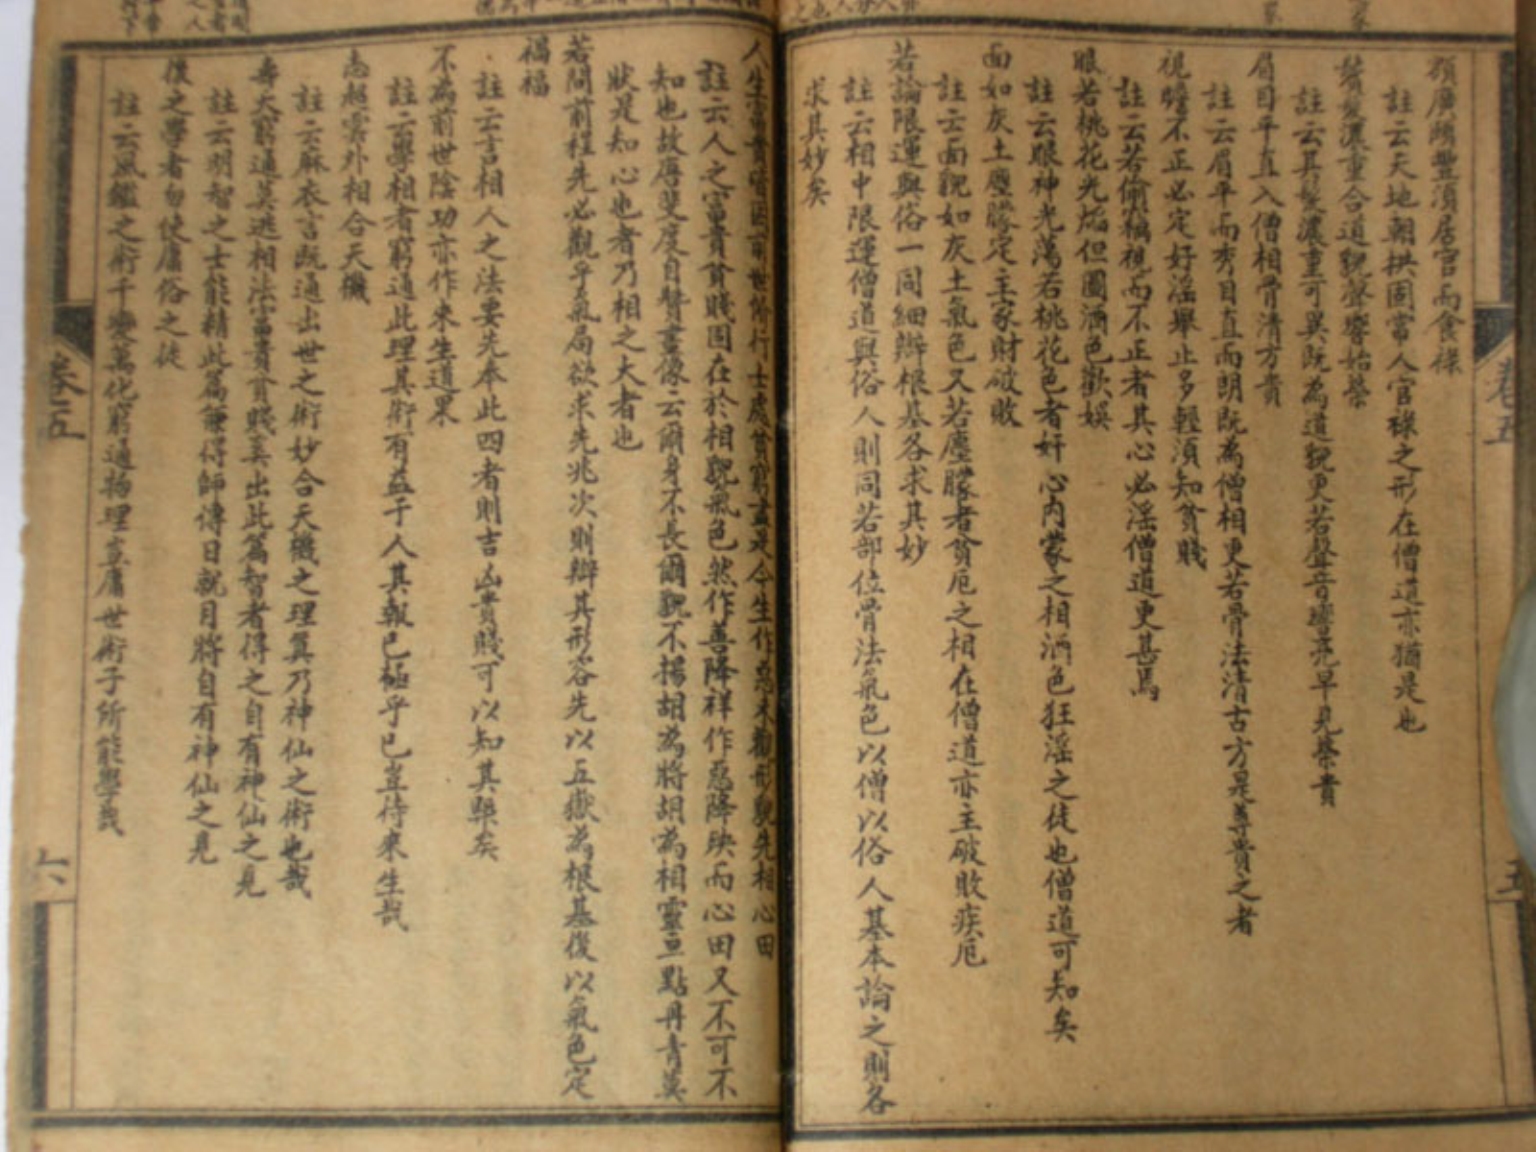 額廣頤豐須居官而食祿
註云天地朝拱固常人官祿之形在僧道亦猶是也
鬢髮濃重合道貌聲響始榮
註云其髮濃重可異既為道貌更若聲音響亮早見榮貴
眉目平直入僧相骨清方貴
註云眉平而秀目直而朗既為僧相更若骨法清古方是尊貴之者
視瞻不正必定好淫舉止多輕須知貧賤
註云若偷竊視而不正者其心必淫僧道更甚焉
眼若桃花光焰但圖酒色歡娛
註云眼神光蕩若桃花色者奸心內蒙之相酒色狂淫之徒也僧道可知矣
面如灰土塵朦定主家財破敗
註云面貌如灰土氣色又若塵朦者貧厄之相在僧道亦主破敗疾厄
若論限運與俗一同細辯根基各求其妙
註云相中限運僧道與俗人則同若部位骨法氣色以僧以俗人基本論之則各
求其妙矣
卷五
五
人生富貴皆因前世修行士處貧窮盡是今生作惡未觀形貌先相心田
註云人之富貴貧賤固在於相貌氣色然作善降祥作惡降殃而心田又不可不
知也故唐斐度自贊畫像云爾身不長爾貌不揚胡為將胡為相靈亘點丹青莫
狀是知心也者乃相之大者也
若問前程先必觀乎氣局欲求先兆次則辯其形容先以五嶽為根基後以氣色定
禍福
註云言相人之法要先奉此四者則吉凶貴賤可以知其槩矣
不為前世陰功亦作來生道果
註云學相者窮通此理其術有益于人其報已極乎已豈待來生哉
志超雲外相合天機
註云麻衣言既通出世之術妙合天機之理算乃神仙之術也哉
壽夭窮通莫逃相法富貴貧賤莫出此篇智者得之自有神仙之見
註云明智之士能精此篇無得師傳日就月將自有神仙之見
後之學者勿使庸俗之徒
註云風鑑之術千變萬化窮通物理豈庸世術子所能學哉
卷五
六